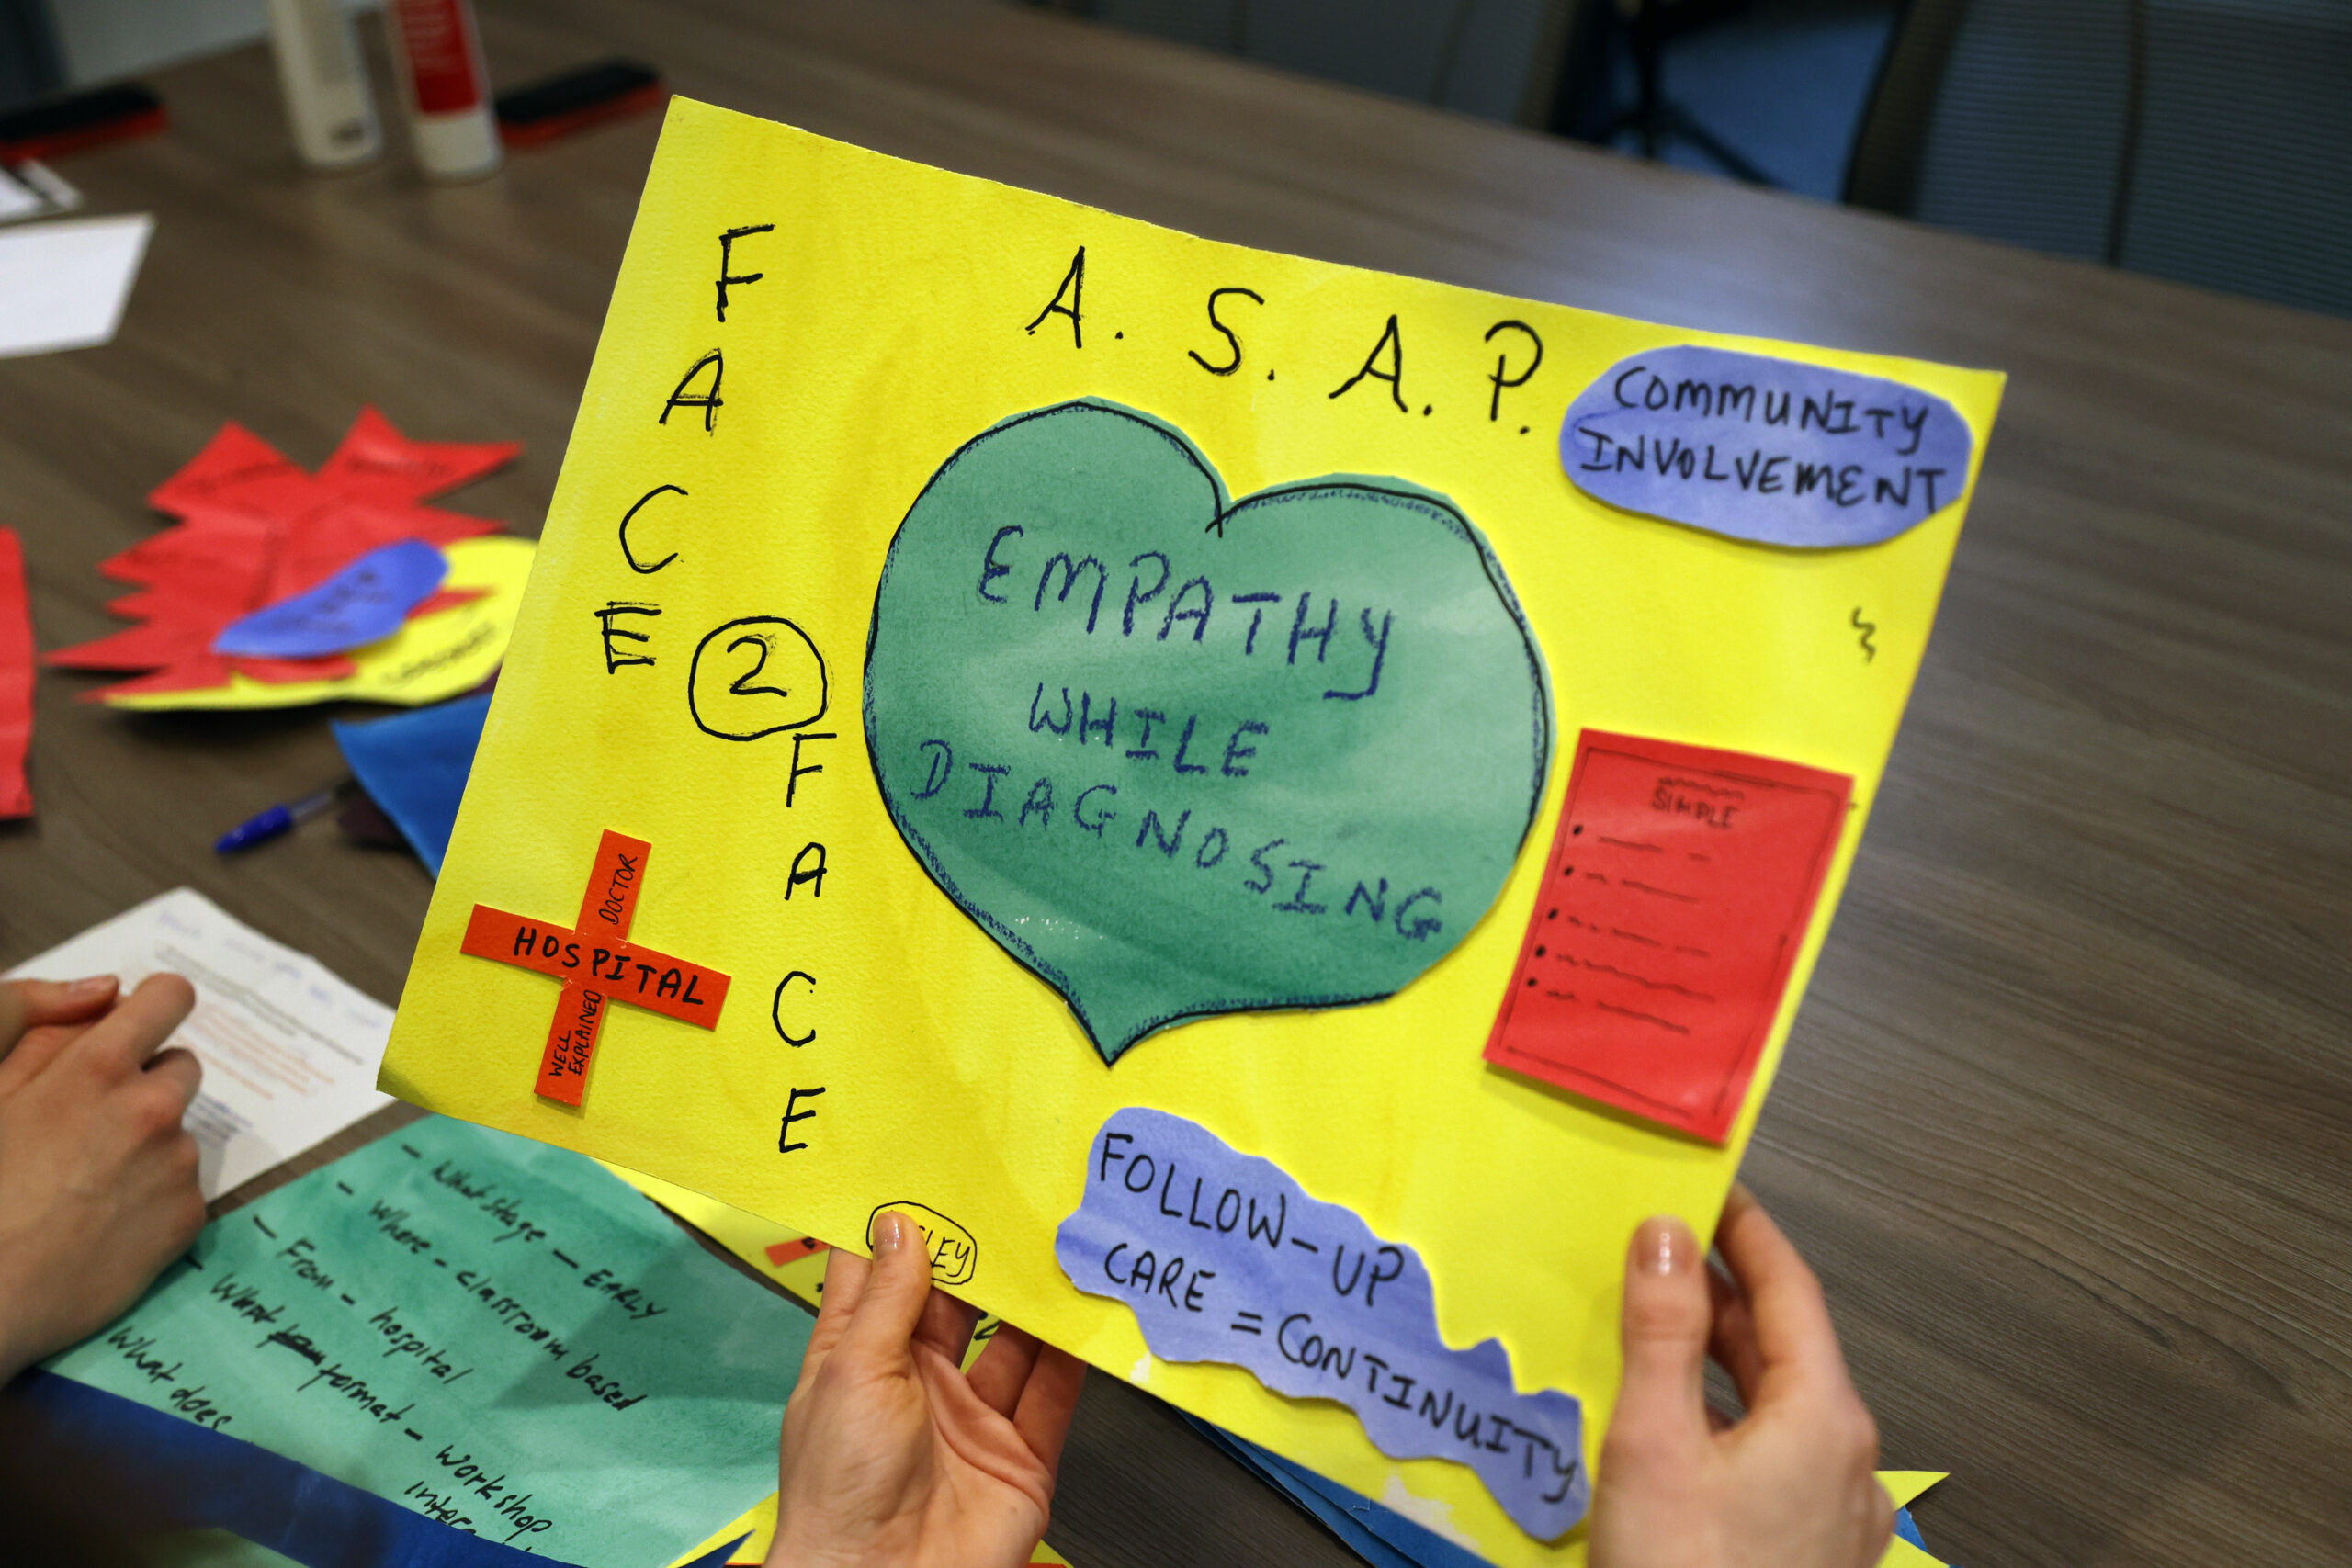 A. S. A. P.
FACE
2
FACE
COMMUNITY
INVOLVEMENT
EMPATHY
WHILE
DIAGNOSING
SIMPLE
DOCTOR
HOSPITAL
WELL
EXPLAINED
FOLLOW-UP
CARE = CONTINUITY
- What stage - EARLY
- Where - classroom based
- From - hospital
- What format - workshop
What does